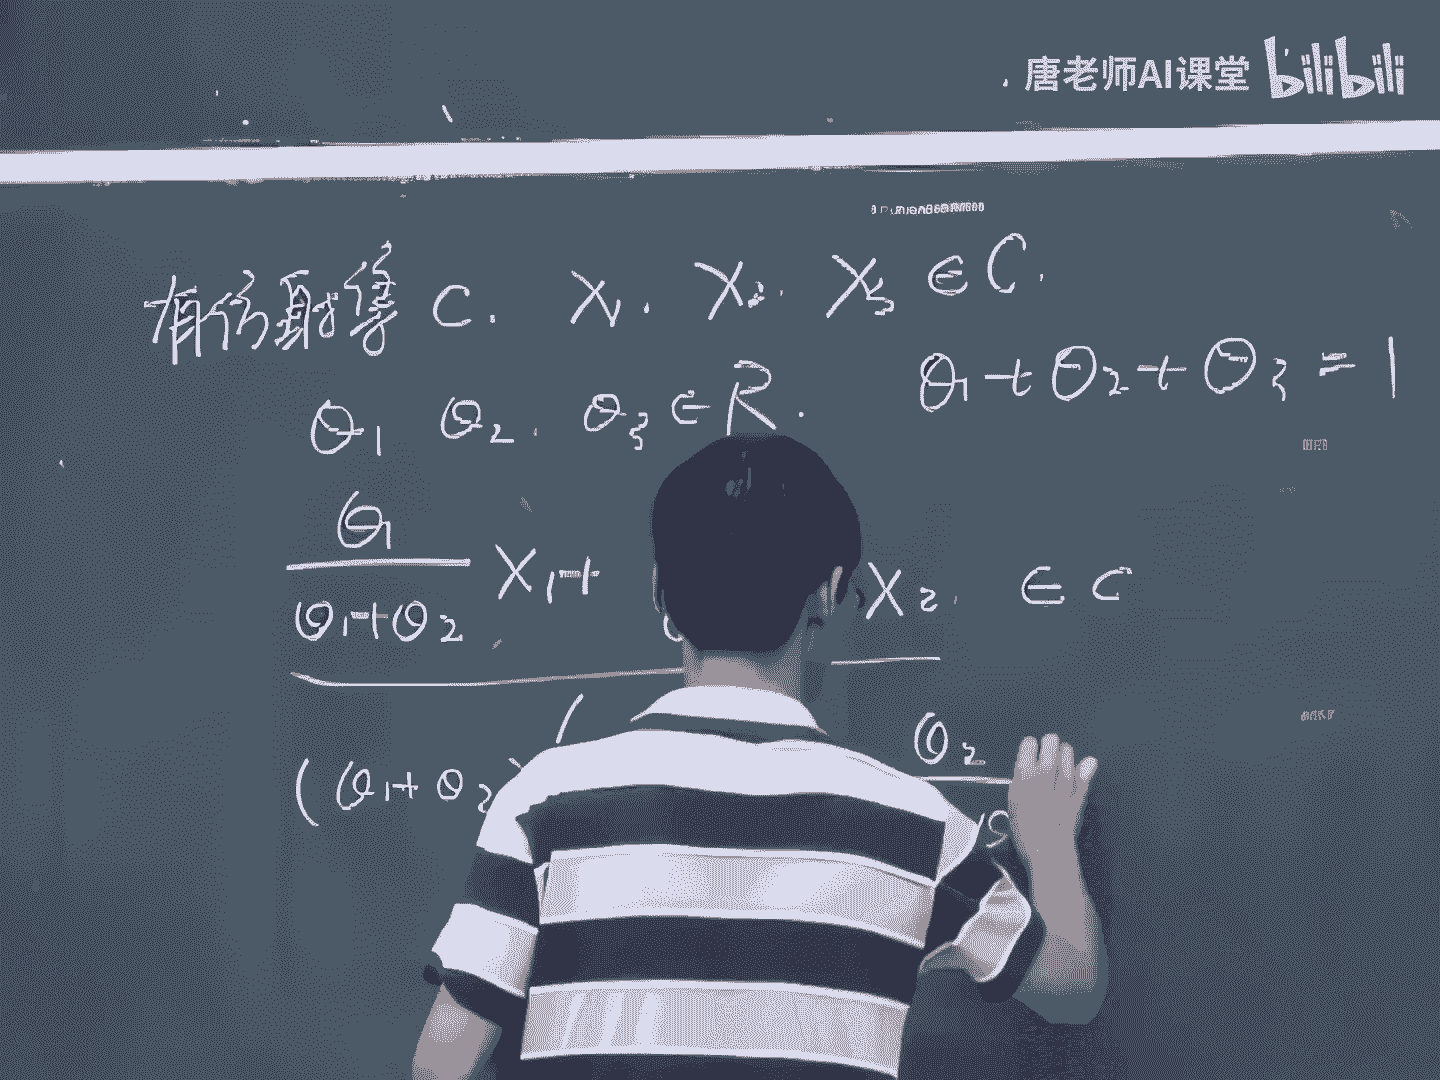 唐老师AI课堂 bilibili
有仿射集 C. X₁. X₂. X₃ ∈ C.
θ₁ θ₂. θ₃ ∈ R. θ₁+θ₂+θ₃=1
θ₁
X₁+ X₂. ∈ C
θ₁+θ₂
θ₂
(θ₁+θ₂